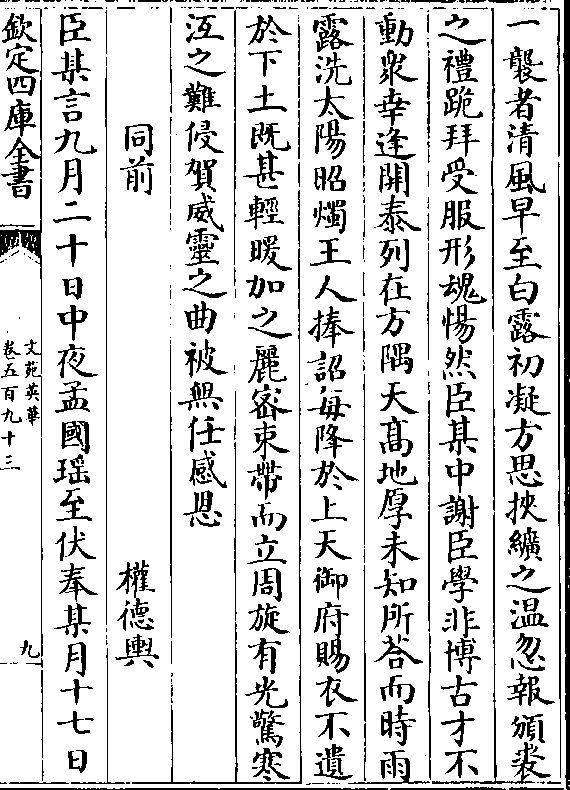 一襲者清風早至白露初凝方思挾纊之温忽報頒裘
之禮跪拜受服形魂惕然臣某中謝臣學非博古才不
動衆幸逢開泰列在方隅天髙地厚未知所荅而時雨
露洗太陽昭燭王人捧詔每降於上天御府賜衣不遺
於下土既甚輕暖加之麗密束帶而立周旋有光驚寒
沍之難侵賀威靈之曲被無任感恩
同前
權德輿
臣某言九月二十日中夜孟國瑶至伏奉某月十七日
欽定四庫全書
文苑英華
卷五百九十三
九